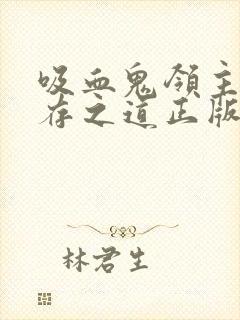 吸血鬼领主
存之道正版
林君生